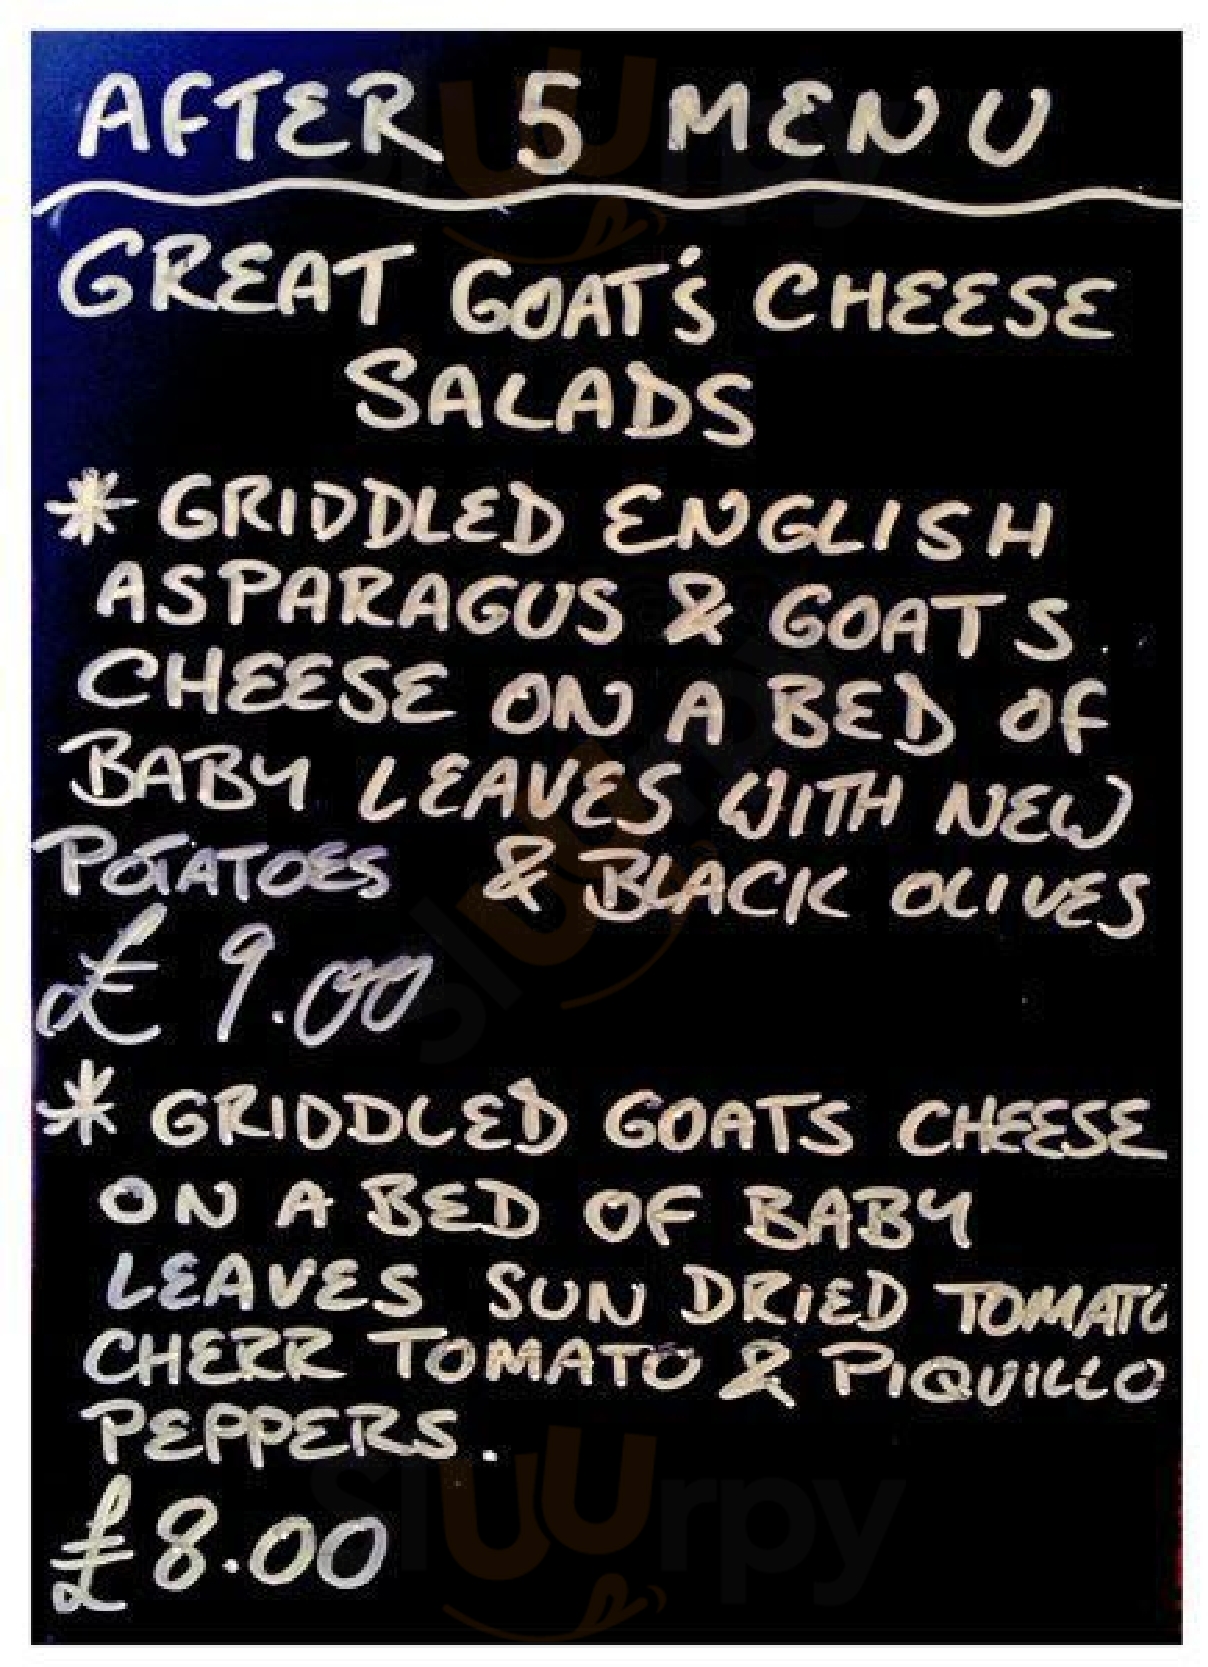 AFTER 5 MENU
GREAT GOAT'S CHEESE
SALADS
* GRIDDLED ENGLISH
ASPARAGUS & GOATS
CHEESE ON A BED OF
BABY LEAVES WITH NEW
POTATOES & BLACK OLIVES
£ 9.00
* GRIDDLED GOATS CHEESE
ON A BED OF BABY
LEAVES SUN DRIED TOMATO
CHERR TOMATO & PIQUILLO
PEPPERS.
£8.00
sluurpy
sluurpy
sluurpy